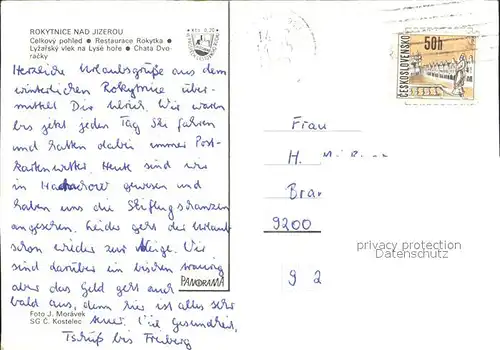 ROKYTNICE NAD JIZEROU
Celkový pohled ● Restaurace Rokytka ●
Lyžařský vlek na Lysé hoře ● Chata Dvo-
račky
Herzliche Urlaubsgrüße aus dem
winterlichen Rokytnice über-
mittelt Dir Ulrich. Wir waren
bis jetzt jeden Tag Ski fahren
und hatten dabei immer Post-
kartenwetter. Heute sind wir
in Harrachow gewesen und
haben uns die Skiflugschanzen
angesehen. Leider geht der Urlaub
schon wieder zur Neige. Wir
sind darüber ein bischen traurig
aber das Geld geht auch
bald aus, denn hier ist alles sehr
teuer. Viel Gesundheit,
Tschüß bis Freiberg
PANORAMA
Foto J. Morávek
SG Č. Kostelec
ČESKOSLOVENSKO
50h
Frau
H.
Bra
9200
9 2
privacy protection
Datenschutz